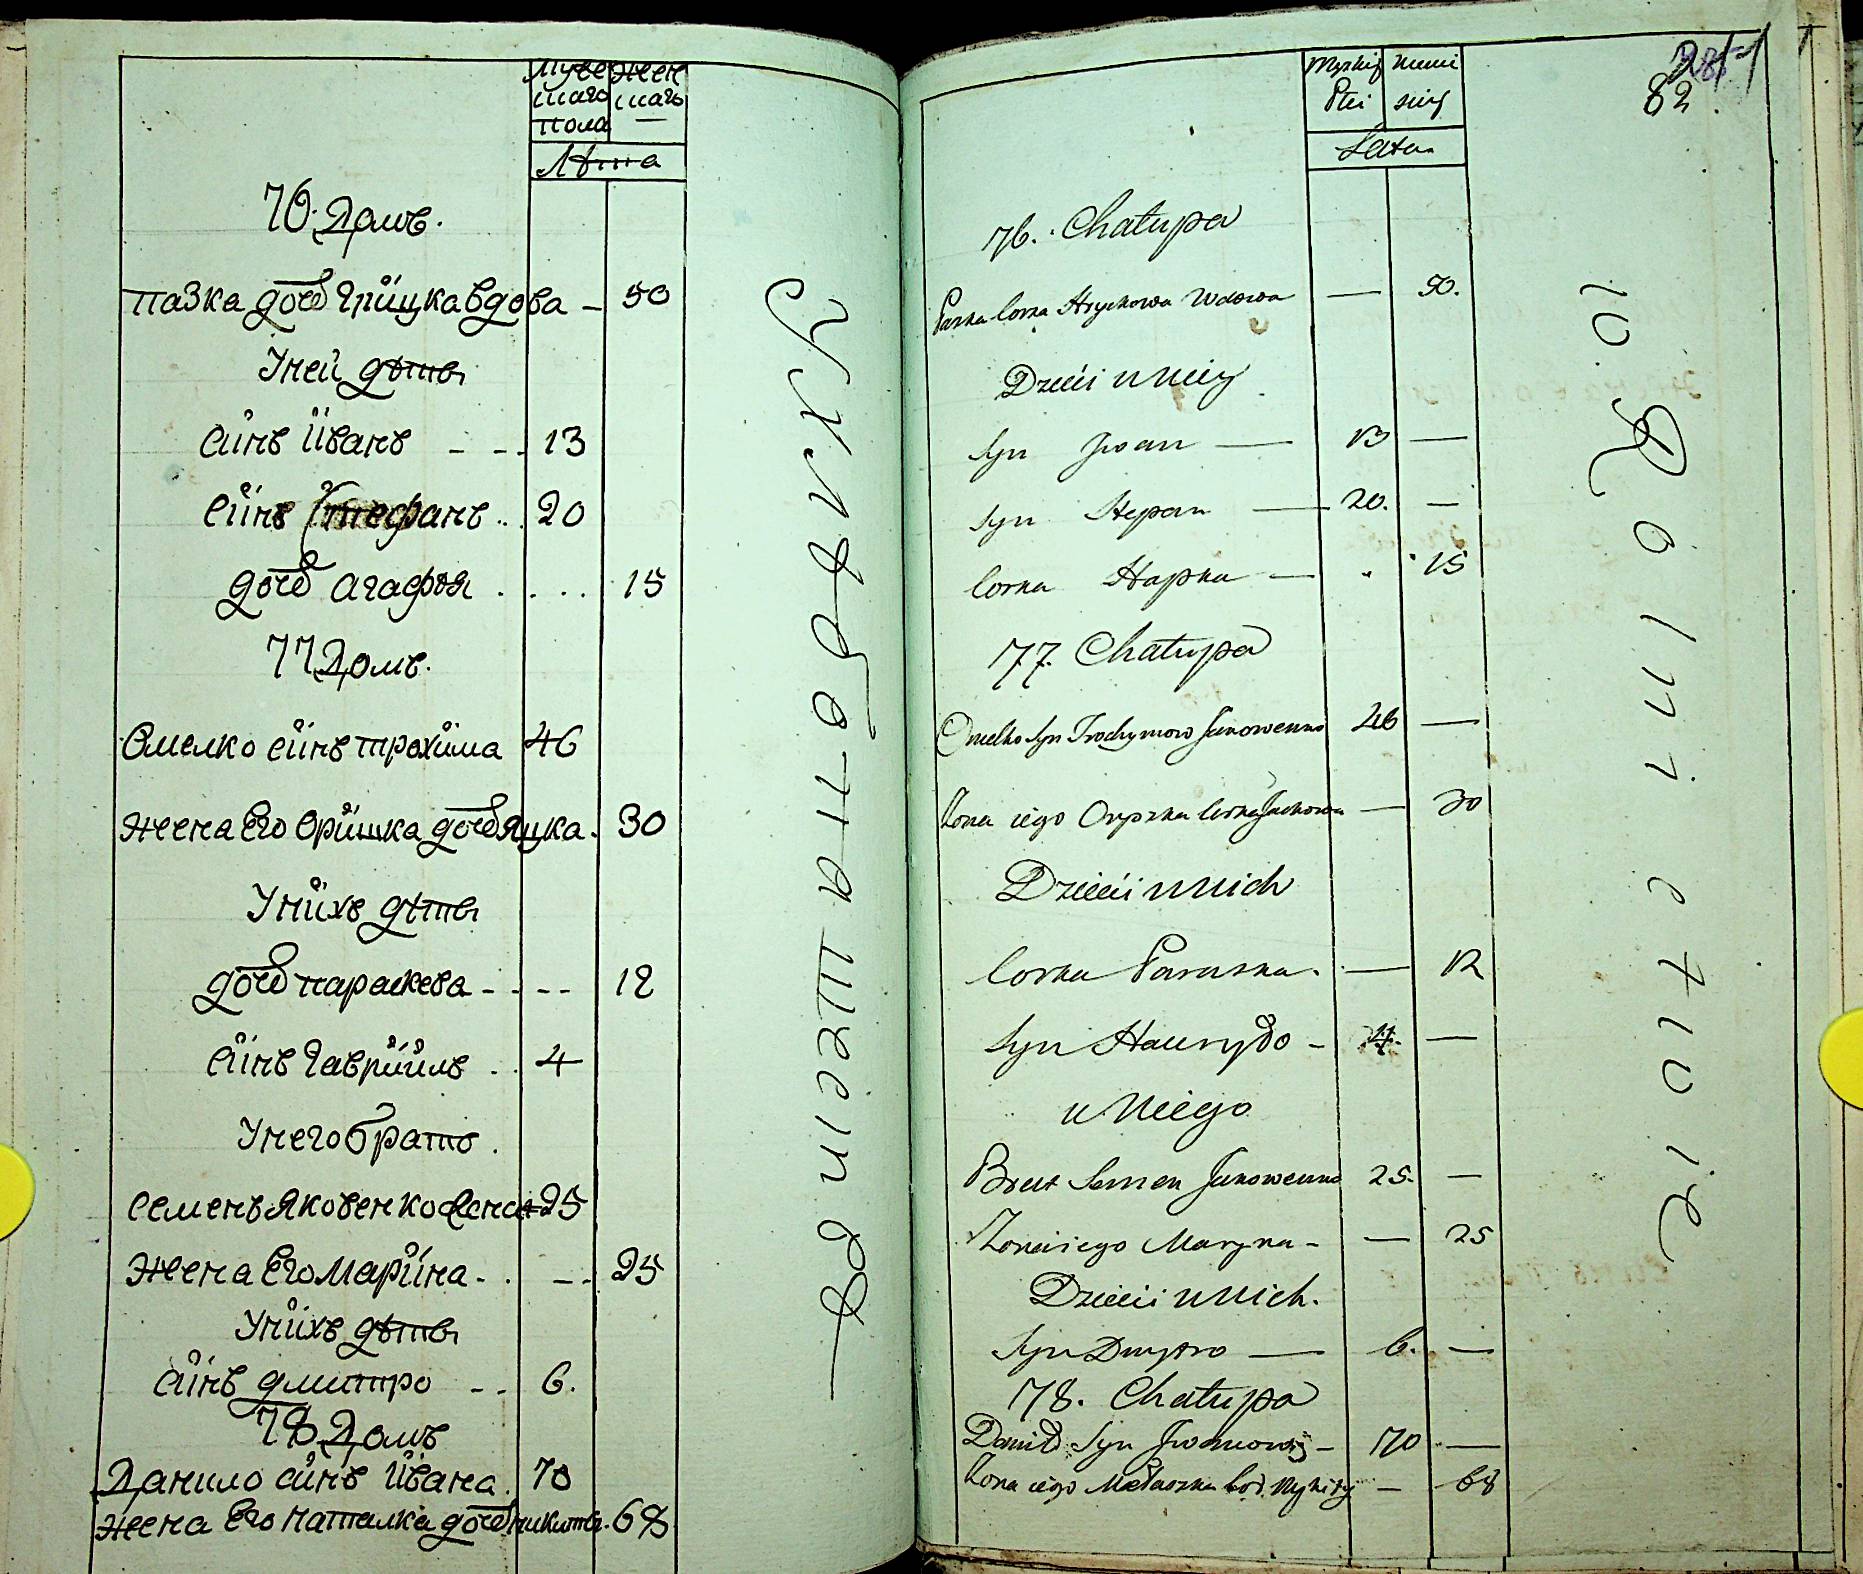 Муже Жен
скаго скаго
пола —
Лѣта
76. Домъ.
Пазка дочь Грицка вдова — 50
У ней дѣти
сiнъ Iванъ - - - 13
сiнъ Стефанъ .. 20
дочь Агафiя . . . . 15
77 Домъ.
Омелко сiнъ Трохима 46
жена Его Оришка дочь Яцка. 30
У нихъ дѣти
дочь Параскева - - - - 12
сiнъ Гаврiилъ . . 4
У него братъ.
Семенъ Яковенко 25
жена Его Марiна - . - - . 25
У нихъ дѣти
сiнъ Дмитро - - 6.
78 Домъ
Данило сiнъ Iвана. 70
жена Его Наталка дочь Никити. 68
82
Męzkiey Płci
Lata
76. Chałupa
Paska Corka Hryckowa Wdowa — 50.
Dzieci u Niey
Syn Jwan — 13 —
Syn Stepan — 20. —
Corka Hapka — " 15
77. Chałupa
Omelko Syn Trochymow 46 —
Żona iego Oryszka Corka Jackowa — 30
Dzieci u Nich
Corka Paraska. — 12
Syn Hawryło - 4. —
u Niego
Brat Semen 25. —
Żona iego Maryna - — 25
Dzieci u Nich.
Syn Dmytro — 6. —
78. Chałupa
Daniło Syn Jwanowy - 70 —
Żona iego Cor. Nykity — 68